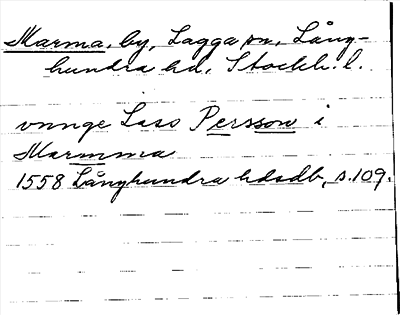 Marma, by, Lagga sn, Lång-
hundra hd, Stockh. l.
vnnge Lass Persson i
Marmma
1558 Långhundra hdsdb, s. 109.